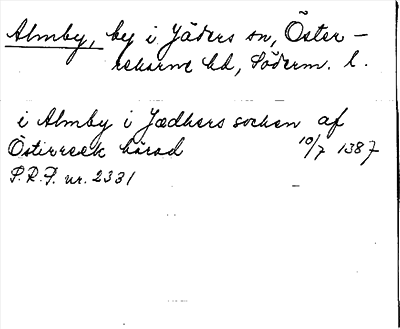 Almby, by i Jäders sn, Öster-
rekarne hd, Söderm. l.
i Almby i Jædhers socken af
Östirreek härad 10/7 1387
P.R.F. nr. 2331